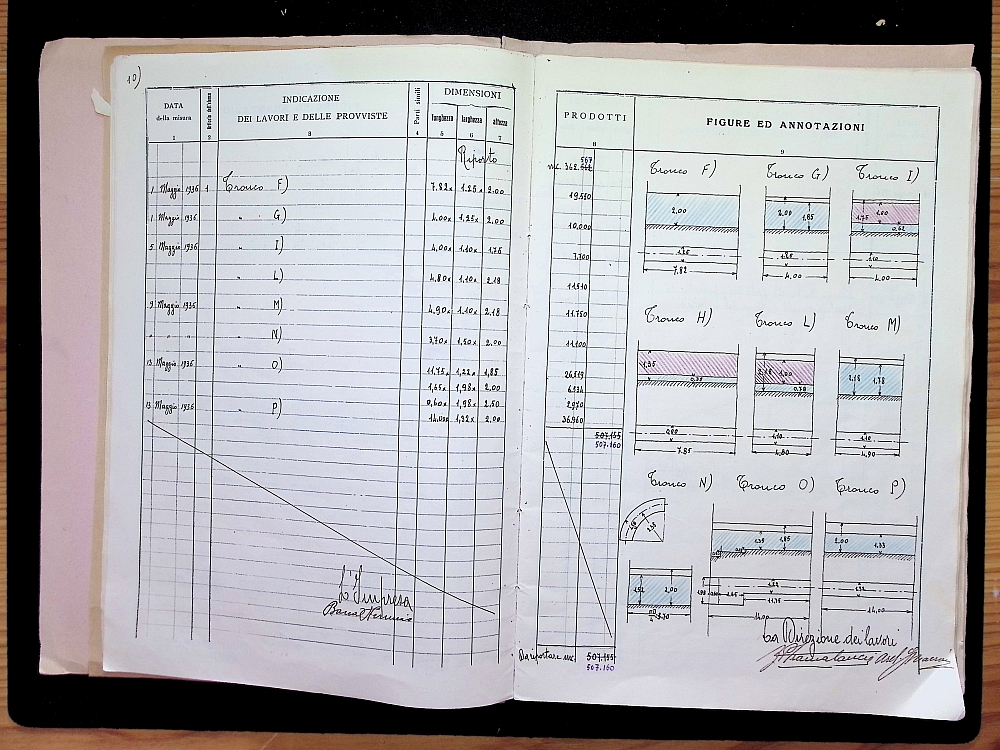 10)
DATA
della misura
INDICAZIONE
DEI LAVORI E DELLE PROVVISTE
Parti simili
DIMENSIONI
lunghezza larghezza altezza
1 2 3 4 5 6 7
Riporto
1 Maggio 1936 1 Tronco F) 7.82x 1.25x 2.00
1 Maggio 1936 " G) 4.00x 1.25x 2.00
5 Maggio 1936 " I) 4.00x 1.10x 1.75
" L) 4.80x 1.10x 2.18
9 Maggio 1936 " M) 4.90x 1.10x 2.18
" " " " N) 3.70x 1.50x 2.00
13 Maggio 1936 " O) 11.75x 1.22x 1.85
1.55x 1.98x 2.00
0.60x 1.98x 2.50
13 Maggio 1936 " P) 14.00x 1.32x 2.00
L'Impresa
PRODOTTI
8
567
mc. 362.
19.550
10.000
7.700
11.510
11.750
11.100
26.519
6.134
2.970
36.960
507.155
507.160
Da riportare mc. 507.155
507.160
FIGURE ED ANNOTAZIONI
9
Tronco F) Tronco G) Tronco I)
2.00
1.25
7.82
2.00 1.65
1.25
4.00
1.75 1.00
0.62
1.10
4.00
Tronco H) Tronco L) Tronco M)
1.35
0.88
7.85
2.18 1.00
0.78
1.10
4.80
2.18 1.78
1.10
4.90
Tronco N) Tronco O) Tronco P)
1.52 2.00
1.35 1.85
1.22
11.75
14.00
2.00 1.33
1.32
14.00
La Direzione dei lavori